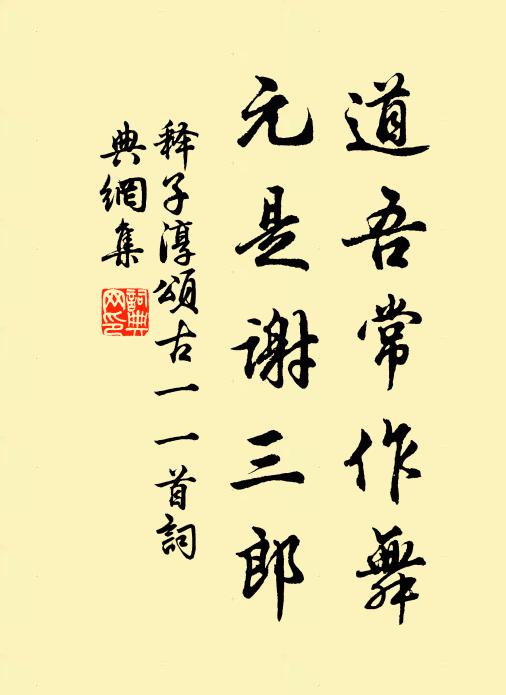 道吾常作舞
元是谢三郎
释子淳頌古一一首詞
典網集
詞典
网印